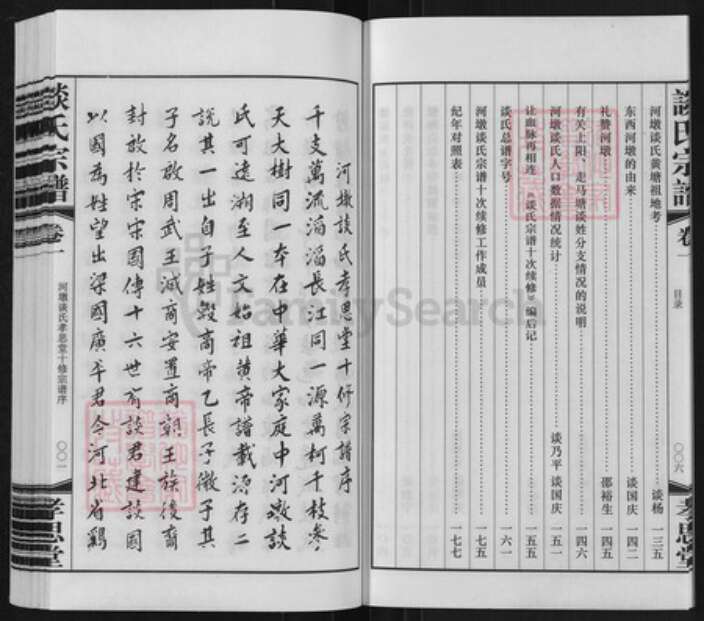 談氏宗譜
卷一
目录
〇〇六
孝思堂
河墩谈氏黄塘祖地考 谈杨 一三五
东西河墩的由来 谈国庆 一四二
礼赞河墩 邵裕生 一四五
有关上阳、走马塘谈姓分支情况的说明 一四六
河墩谈氏人口数据情况统计 谈乃平 谈国庆 一五一
让血脉再相连——《谈氏宗谱十次续修》编后记 一五五
谈氏总谱字号 一六一
河墩谈氏宗谱十次续修工作成员 一七五
纪年对照表 一七七
河墩談氏孝思堂十修宗譜序
千支萬流滔滔長江同一源萬柯千枝參
天大樹同一本在中華大家庭中河墩談
氏可遠溯至人文始祖黄帝譜載源存二
説其一出自子姓殷商帝乙長子微子其
子名啟周武王滅商安置商朝王族後裔
封啟於宋宋國傳十六世有談君建談國
以國為姓望出梁國廣平君今河北省鷄
談氏宗譜
卷一
河墩谈氏孝思堂十修宗谱序
〇〇一
孝思堂
FamilySearch